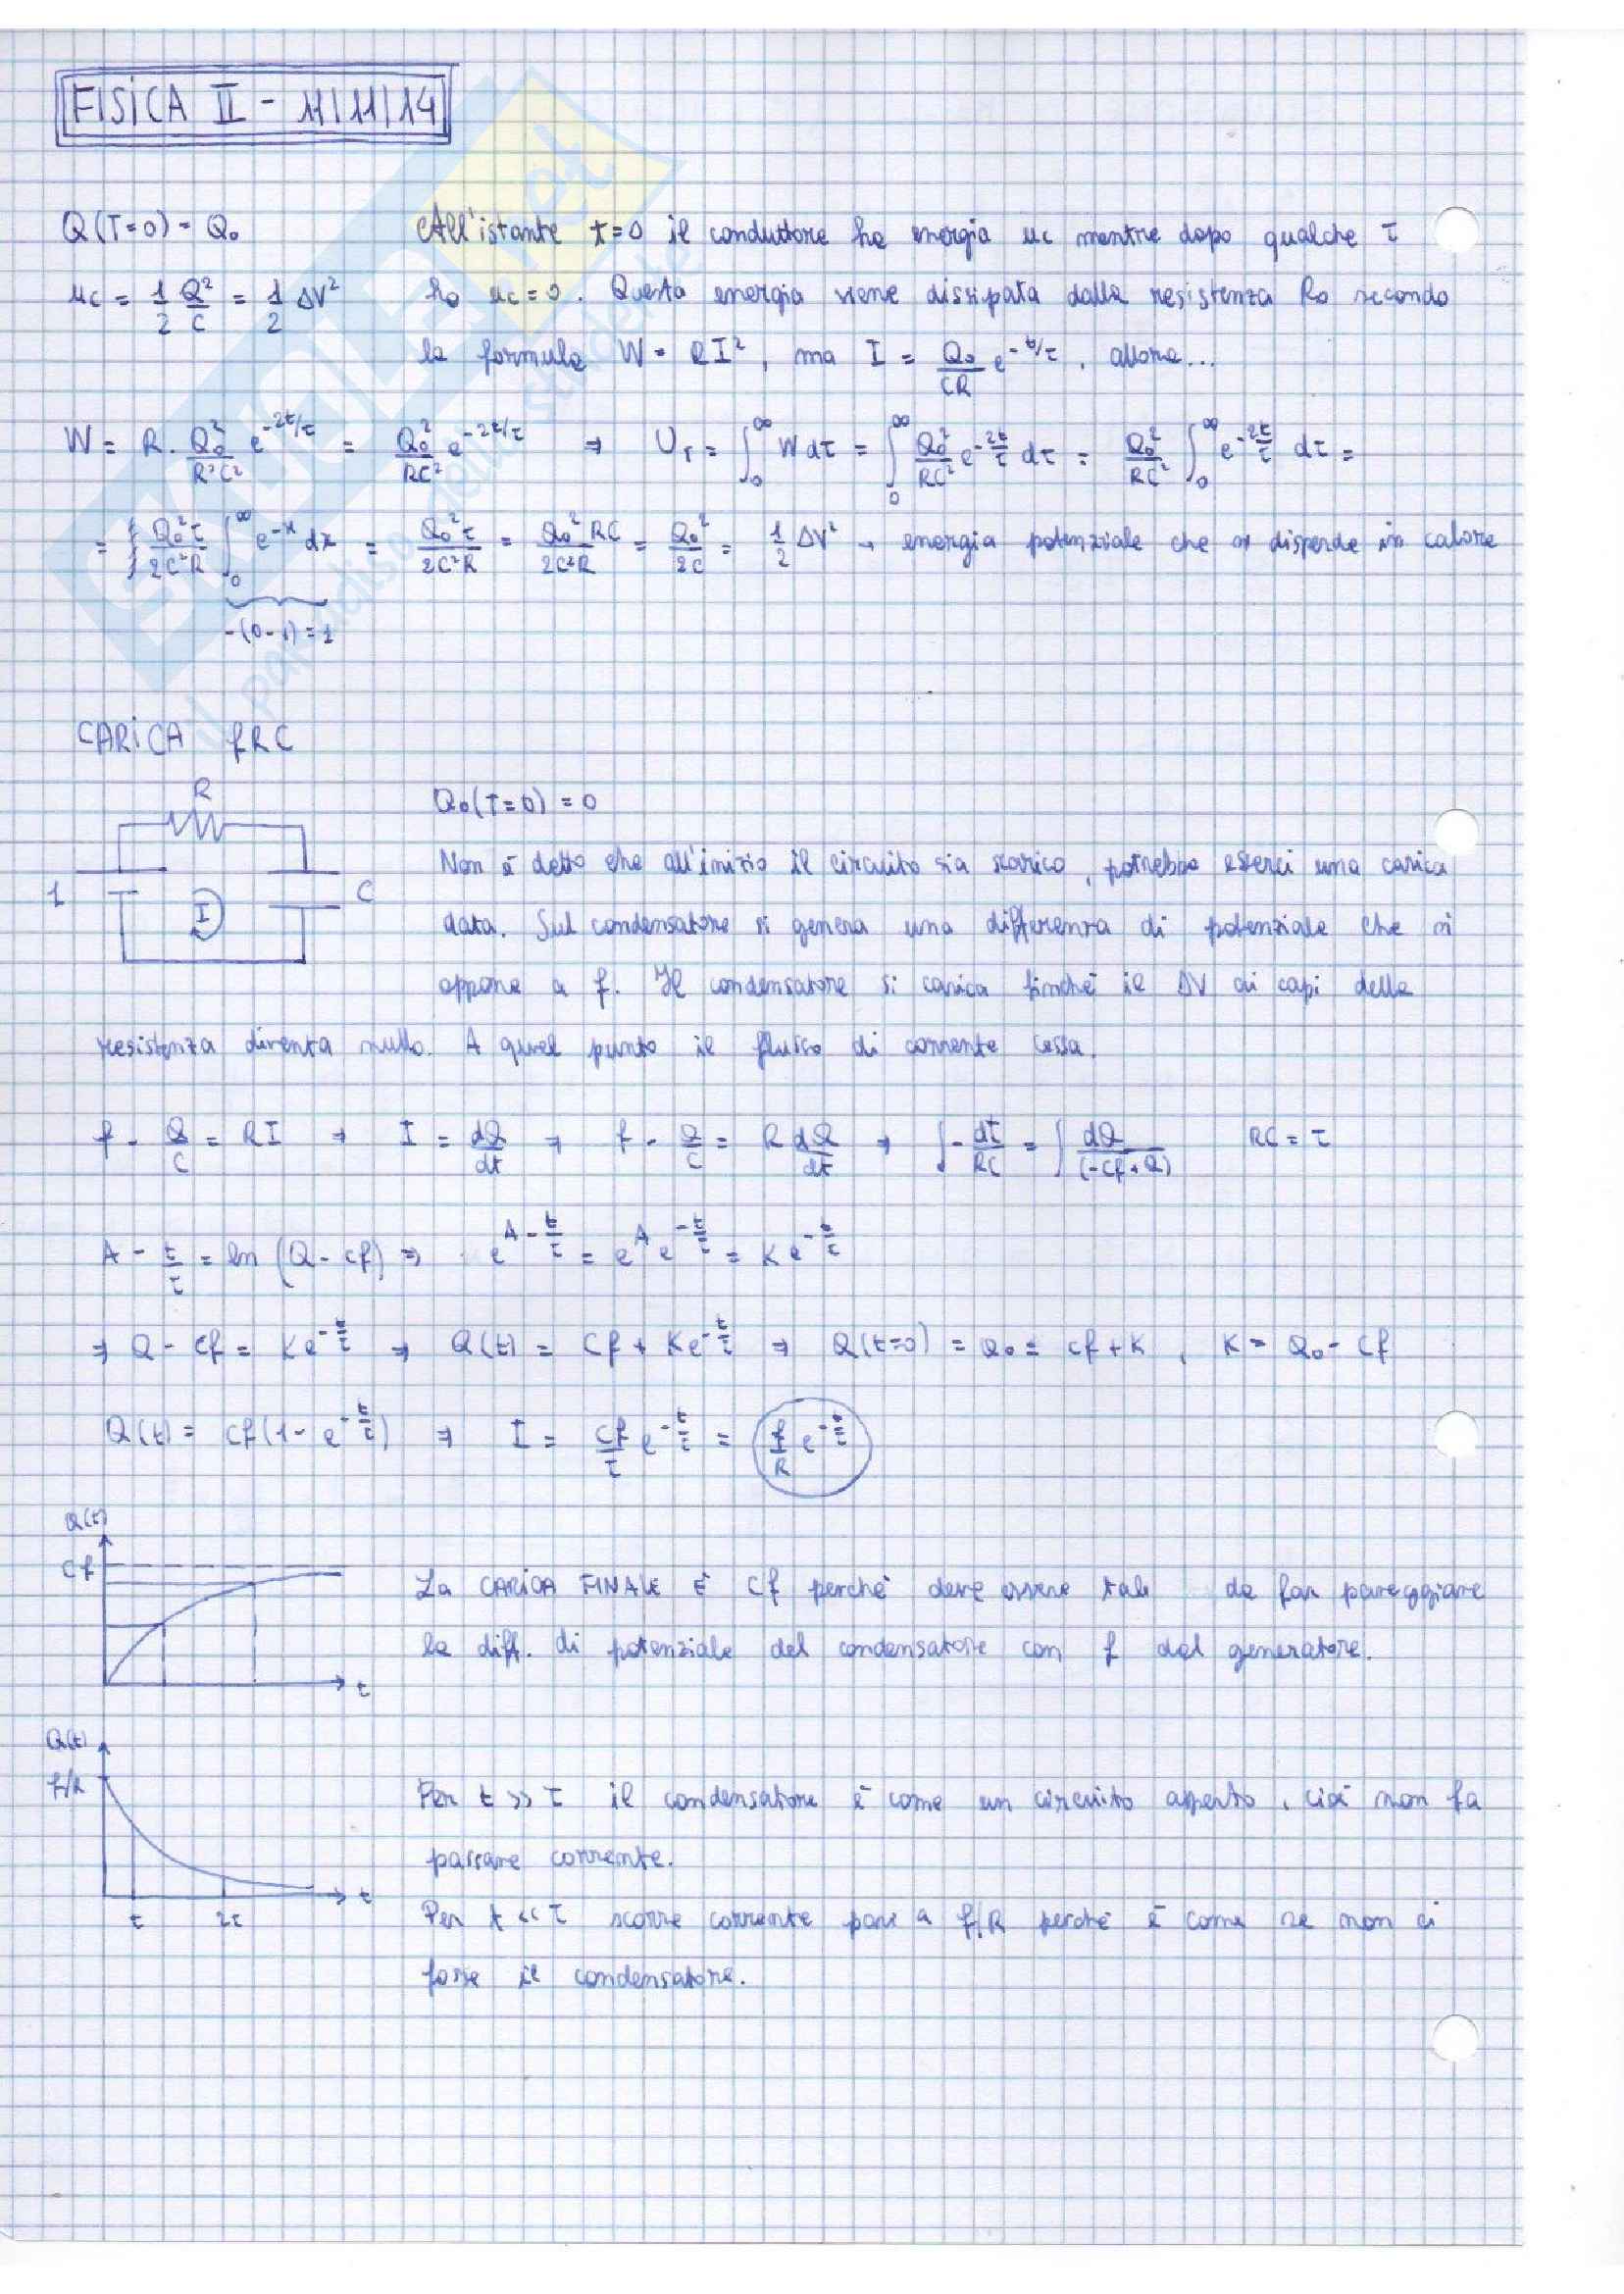 FISICA II - 11/11/14
Q(T=0) = Q₀ All'istante t=0 il conduttore ha energia uc mentre dopo qualche τ
uc = 1/2 Q²/C = 1/2 ΔV² ho uc=0. Questa energia viene dissipata dalla resistenza R₀ secondo
la formula W = RI², ma I = Q₀/CR e^-t/τ, allora...
W = R · Q₀²/R²C² e^-2t/τ = Q₀²/RC² e^-2t/τ ⇒ Ur = ∫₀^∞ W dτ = ∫₀^∞ Q₀²/RC² e^-2t/τ dτ = Q₀²/RC² ∫₀^∞ e^-2t/τ dτ =
= Q₀²τ/2C²R ∫₀^∞ e^-x dx = Q₀²τ/2C²R = Q₀²RC/2C²R = Q₀²/2C = 1/2 ΔV² → energia potenziale che si disperde in calore
-(0-1) = 1
CARICA fRC
R
Q₀(T=0) = 0
Non è detto che all'inizio il circuito sia scarico, potrebbe esserci una carica
1 I C
data. Sul condensatore si genera una differenza di potenziale che si
oppone a f. Il condensatore si carica finché il ΔV ai capi della
resistenza diventa nullo. A quel punto il flusso di corrente cessa.
f - Q/C = RI ⇒ I = dQ/dt ⇒ f - Q/C = R dQ/dt ⇒ ∫ - dt/RC = ∫ dQ/(-Cf+Q) RC = τ
A - t/τ = ln (Q - Cf) ⇒ e^A-t/τ = e^A e^-t/τ = K e^-t/τ
⇒ Q - Cf = Ke^-t/τ ⇒ Q(t) = Cf + Ke^-t/τ ⇒ Q(t=0) = Q₀ = Cf + K, K = Q₀ - Cf
Q(t) = Cf(1 - e^-t/τ) ⇒ I = Cf/τ e^-t/τ = f/R e^-t/τ
Q(t)
Cf
La CARICA FINALE È Cf perché deve essere tale da far pareggiare
la diff. di potenziale del condensatore con f del generatore.
t
Q(t)
f/R
Per t >> τ il condensatore è come un circuito aperto, cioè non fa
passare corrente.
t
τ 2τ
Per t << τ scorre corrente pari a f/R perché è come se non ci
fosse il condensatore.
SKUOLA.net
il paradiso dello studente